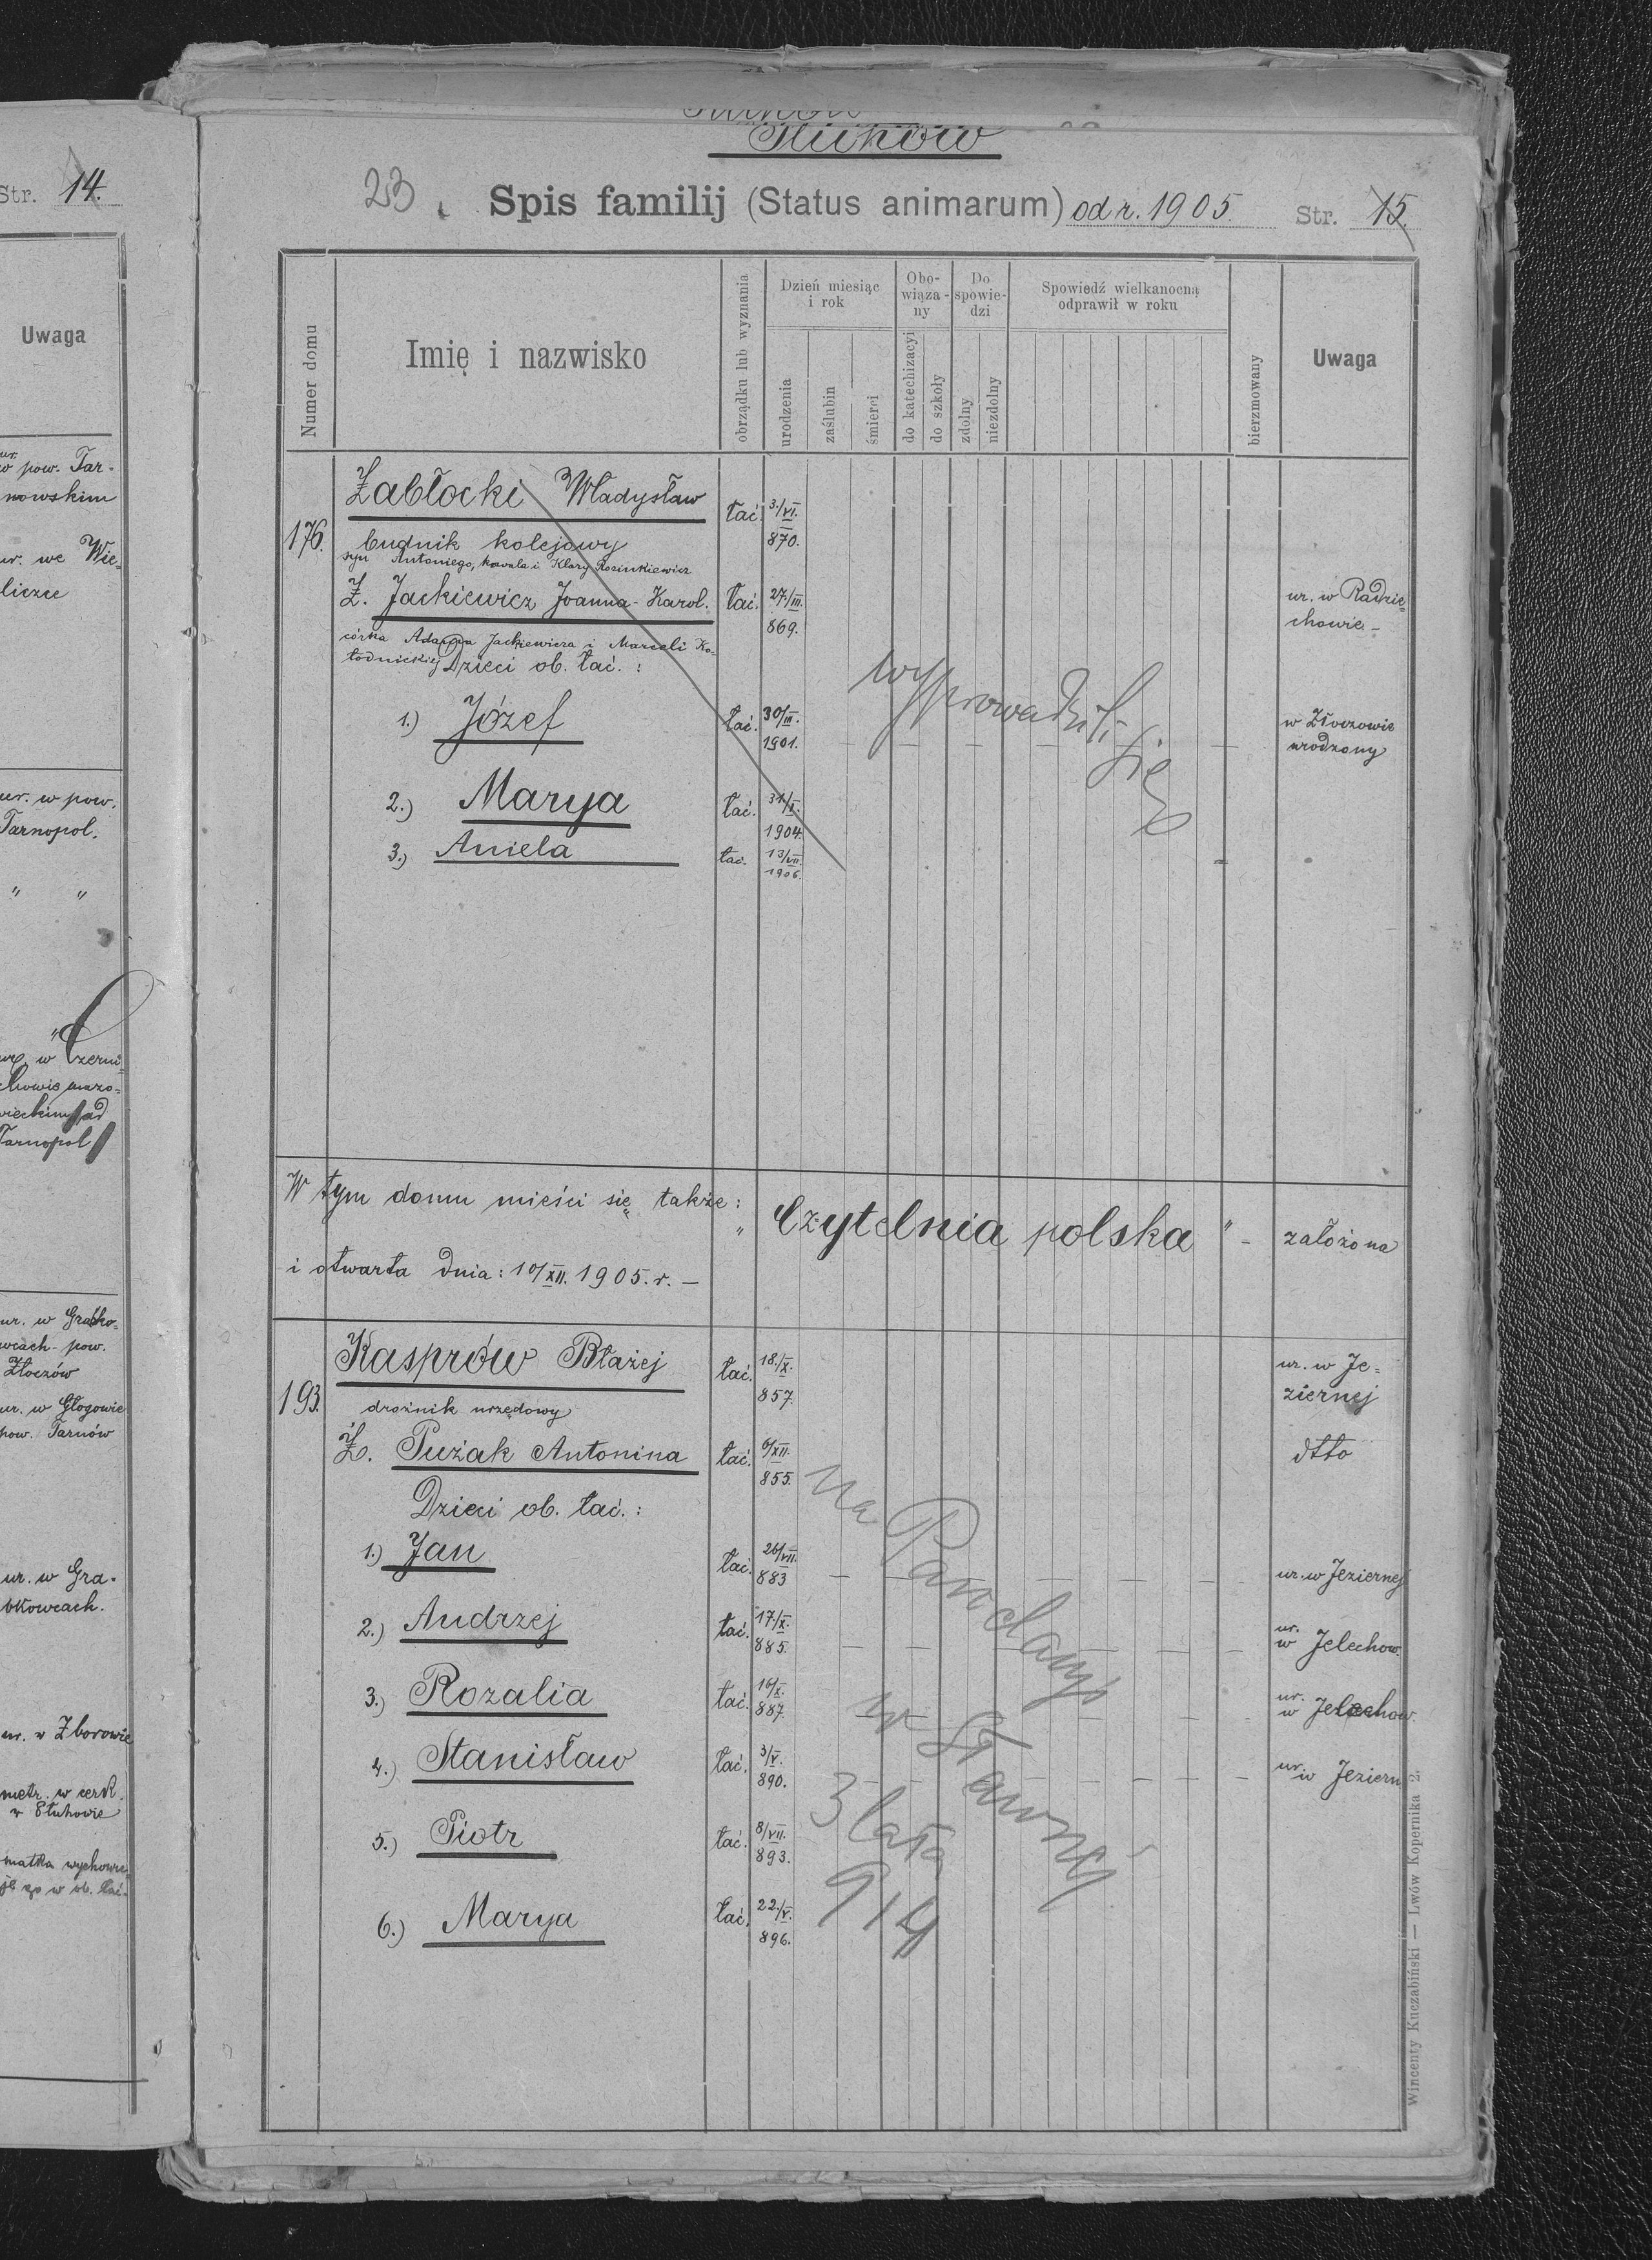 Str. 14.
Uwaga
ur.
w pow. Tar-
nowskim
ur. we Wie-
liczce
ur. w pow.
Tarnopol.
" "
ur. w Czerni-
chowie mazo-
wieckim ad
Tarnopol
ur. w Grabko-
wcach - pow.
Złoczów
ur. w Głogowie
pow. Tarnów
ur. w Gra-
bkowcach.
ur. w Zborowie
metr. w cerk.
w Słuhowie
matka wychowu-
je go w ob. łać.
Tłuhów
23. Spis familij (Status animarum) od r. 1905. Str. 15.
Numer domu
Imię i nazwisko
obrządku lub wyznania
Dzień miesiąc
i rok
urodzenia
zaślubin
śmierci
Obo-
wiąza-
ny
do katechizacyi
do szkoły
Do
spowie-
dzi
zdolny
niezdolny
Spowiedź wielkanocną
odprawił w roku
bierzmowany
Uwaga
Zabłocki Władysław łać. 3/VI.
176. budnik kolejowy 870.
syn Antoniego, kowala i Klary Rosinkiewicz
Ż. Jackiewicz Joanna-Karol. łać. 27/III. ur. w Radzie-
869. chowie -
córka Adama Jackiewicza i Marceli Ko-
łodnickiej Dzieci ob. łać.:
wyprowadzili się
1.) Józef łać. 30/III. w Złoczowie
1901. urodzony
2.) Marya łać. 31/X.
1904.
3.) Aniela łać. 13/VII.
1906.
W tym domu mieści się także: „Czytelnia polska" - założona
i otwarta dnia: 10/XII. 1905. r. -
Kasprów Błażej łać. 18/X. ur. w Je-
193. 857. ziernej
drożnik urzędowy
Ż. Pużak Antonina łać. 6/XII. dtto
855.
Dzieci ob. łać.:
1.) Jan łać. 26/VII. ur. w Jeziernej
883
2.) Andrzej łać. 17/X. ur. w Jelechow.
885.
3.) Rozalia łać. 16/X. ur. w Jelechow
887.
4.) Stanisław łać. 3/V. ur. w Jeziern
890.
5.) Piotr łać. 8/VII.
893.
6.) Marya łać. 22/V.
896.
na
w Sławnej
3 lata
914
Wincenty Kuczabiński — Lwów Kopernika 2.